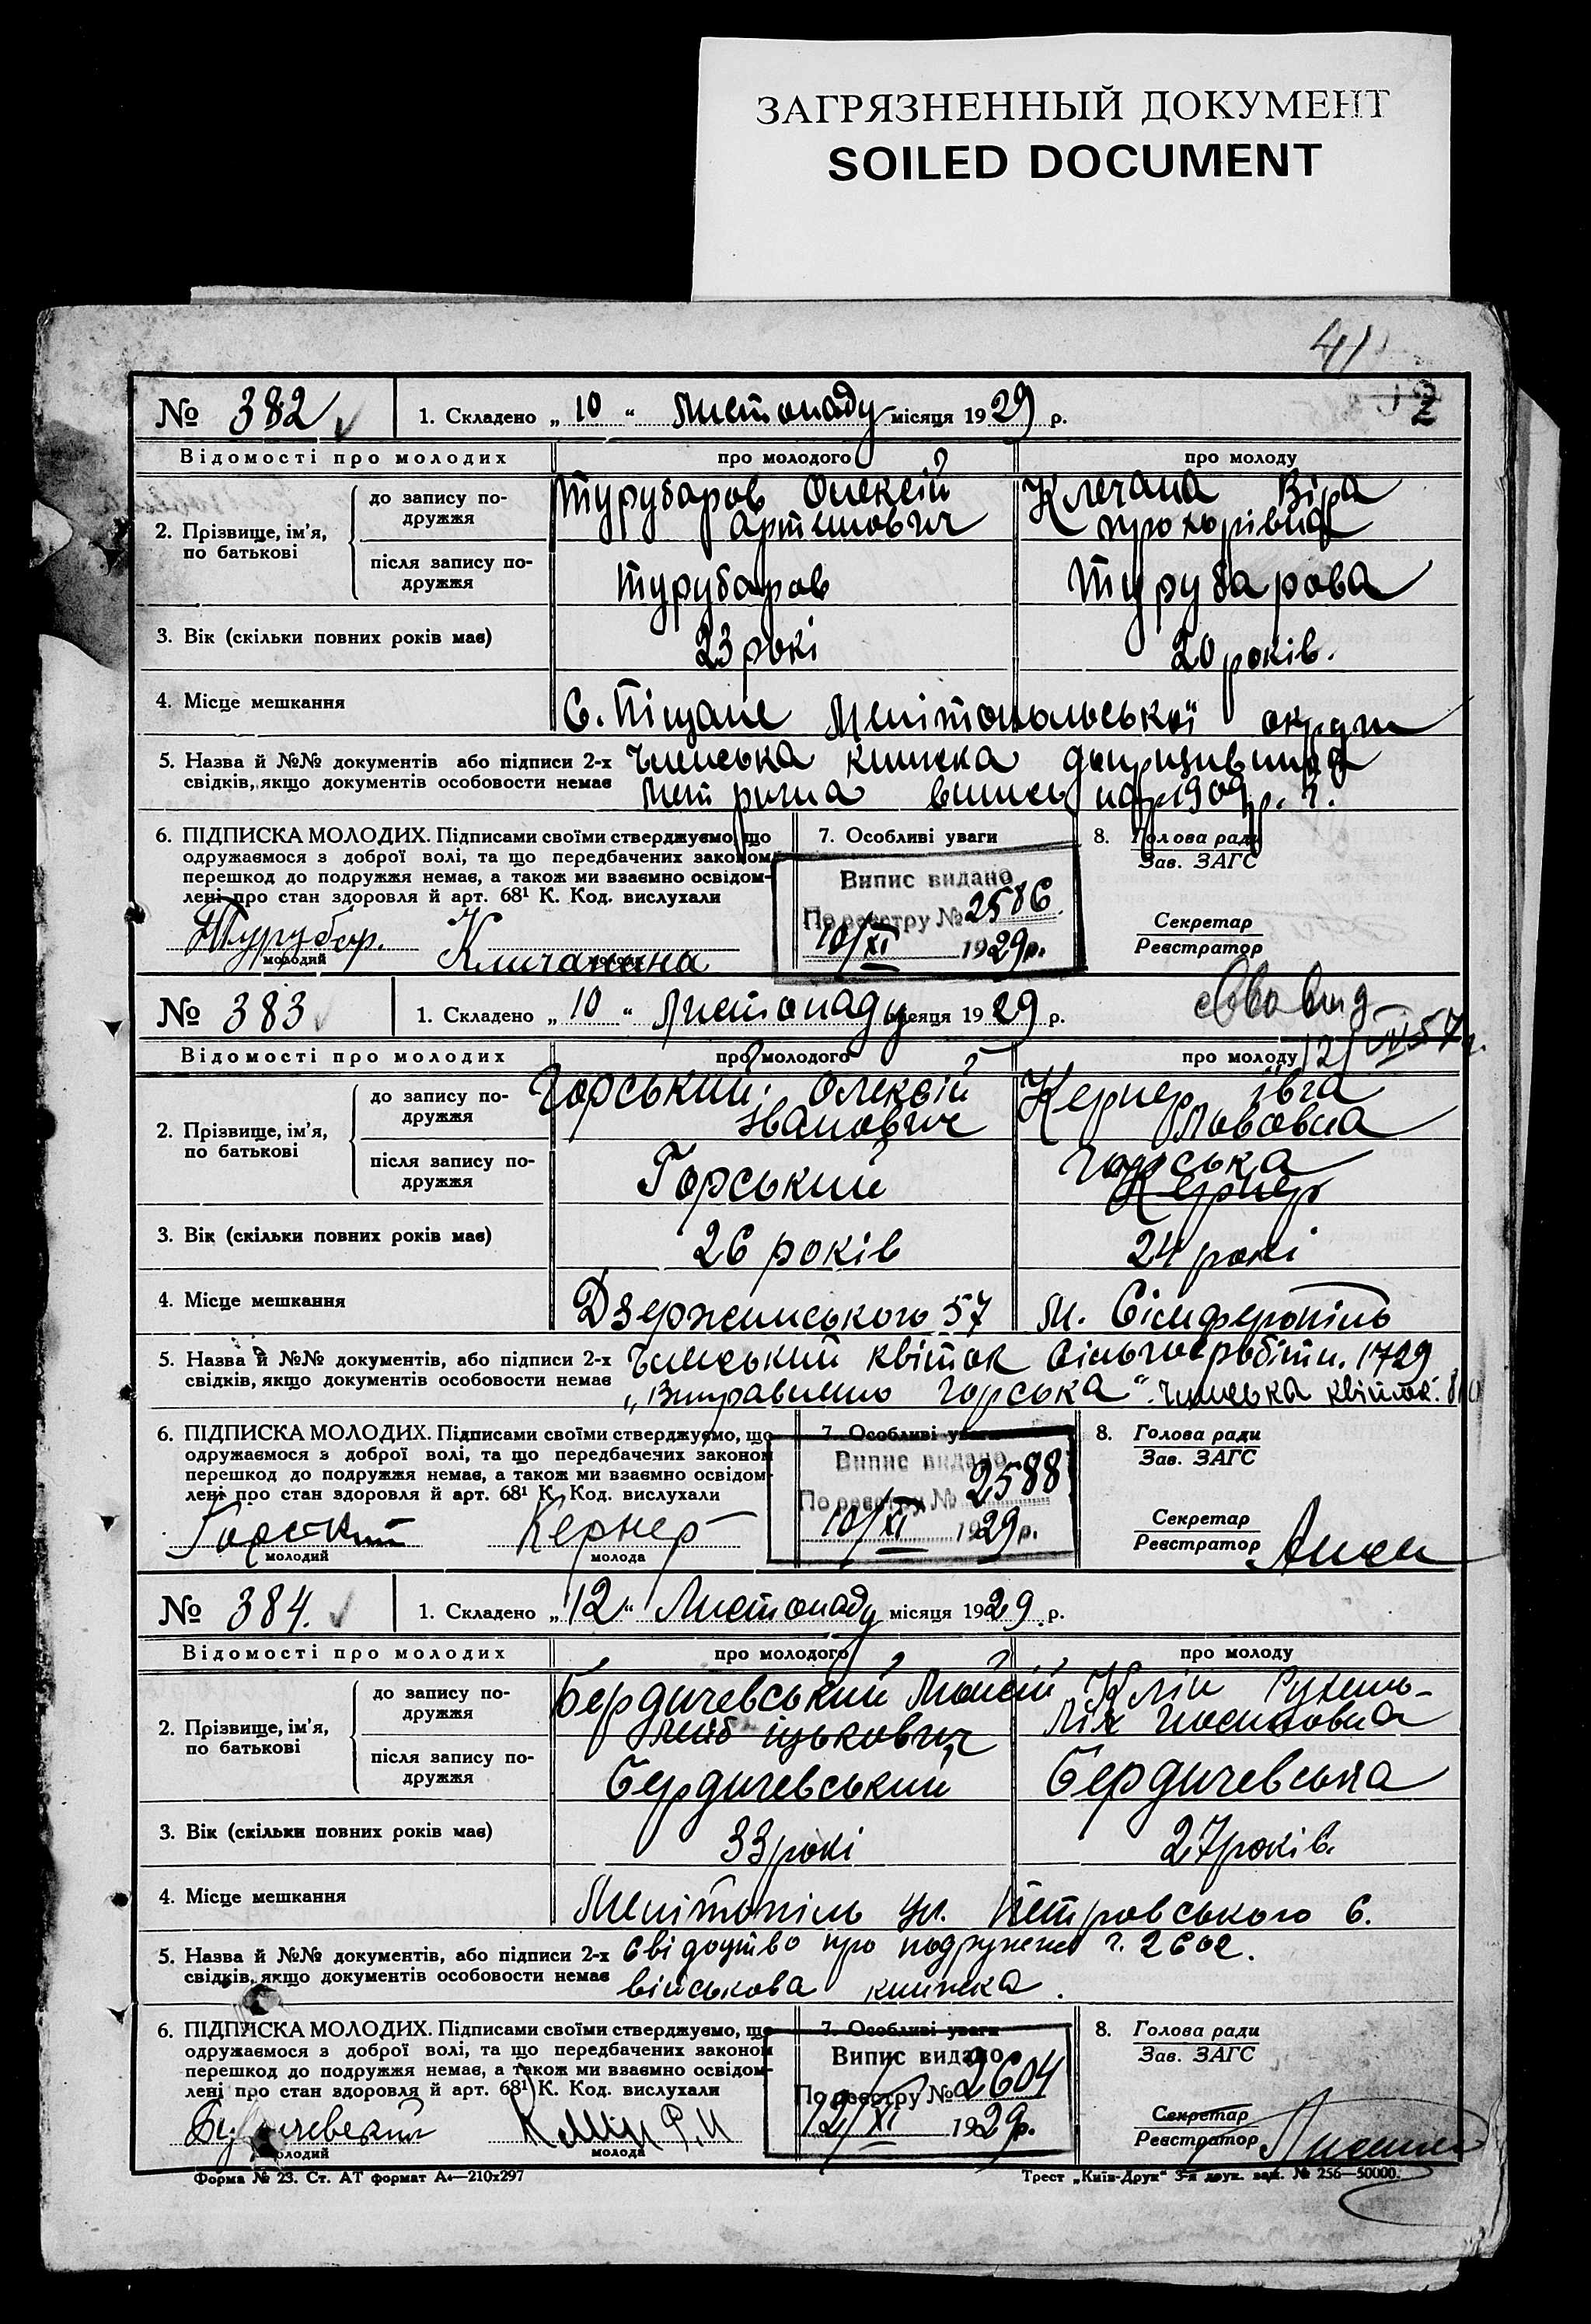 ЗАГРЯЗНЕННЫЙ ДОКУМЕНТ
SOILED DOCUMENT
41
№ 382
1. Складено „ 10 “ Листопаду місяця 1929 р.
Відомості про молодих
про молодого
про молоду
2. Прізвище, ім'я, по батькові
до запису по-
дружжя
Турубаров Олексій
Артемович
Віра
Прохорівна
після запису по-
дружжя
Турубаров
Турубарова
3. Вік (скільки повних років має)
23 рокі
20 років.
4. Місце мешкання
С. Піщане Мелітопольської округи
5. Назва й №№ документів або підписи 2-х
свідків, якщо документів особовости немає
Членська книжка
Метрична випись 1909 р.
6. ПІДПИСКА МОЛОДИХ. Підписами своїми стверджуємо, що
одружаємося з доброї волі, та що передбачених законом
перешкод до подружжя немає, а також ми взаємно освідом-
лені про стан здоровля й арт. 68¹ К. Код. вислухали
Турубар.
молодий
7. Особливі уваги
Випис видано
По реєстру № 2586
10/XI 1929 р.
8. Голова ради
Зав. ЗАГС
Секретар
Реєстратор
№ 383
1. Складено „ 10 “ Листопаду місяця 1929 р.
Відомості про молодих
про молодого
про молоду
2. Прізвище, ім'я, по батькові
до запису по-
дружжя
Горський Олексій
Іванович
Кернер Івга
Львовна
після запису по-
дружжя
Горський
Горська
Кернер
3. Вік (скільки повних років має)
26 років
24 рокі
4. Місце мешкання
Дзержинського 57
м. Сімферопіль
5. Назва й №№ документів, або підписи 2-х
свідків, якщо документів особовости немає
Членський квіток 1729
„Виправлено Горська“. Членська квіток.
6. ПІДПИСКА МОЛОДИХ. Підписами своїми стверджуємо, що
одружаємося з доброї волі, та що передбачених законом
перешкод до подружжя немає, а також ми взаємно освідом-
лені про стан здоровля й арт. 68¹ К. Код. вислухали
Горский
молодий
Кернер
молода
7. Особливі уваги
Випис видано
По реєстру № 2588
10/XI 1929 р.
8. Голова ради
Зав. ЗАГС
Секретар
Реєстратор
№ 384.
1. Складено „ 12 “ Листопаду місяця 1929 р.
Відомості про молодих
про молодого
про молоду
2. Прізвище, ім'я, по батькові
до запису по-
дружжя
Бердичевський Мойсей
Лейб Іцькович
Клін Рухель-
Лія Йосиповна
після запису по-
дружжя
Бердичевський
Бердичевська
3. Вік (скільки повних років має)
33 рокі
27 років.
4. Місце мешкання
Мелітопіль ул. Петровського 6.
5. Назва й №№ документів, або підписи 2-х
свідків, якщо документів особовости немає
Свідоцтво про 2602.
військова книжка.
6. ПІДПИСКА МОЛОДИХ. Підписами своїми стверджуємо, що
одружаємося з доброї волі, та що передбачених законом
перешкод до подружжя немає, а також ми взаємно освідом-
лені про стан здоровля й арт. 68¹ К. Код. вислухали
молодий
Р. И
молода
7. Особливі уваги
Випис видано
По реєстру № 2604
12/XI 1929 р.
8. Голова ради
Зав. ЗАГС
Секретар
Реєстратор
Форма № 23. Ст. АТ формат А₄—210х297
Трест „Київ-Друк“ 3-я друк. зам. № 256—50000.